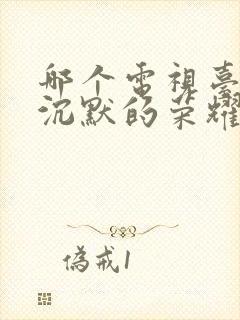 那个电视臺
沉默的荣耀
偽戒1